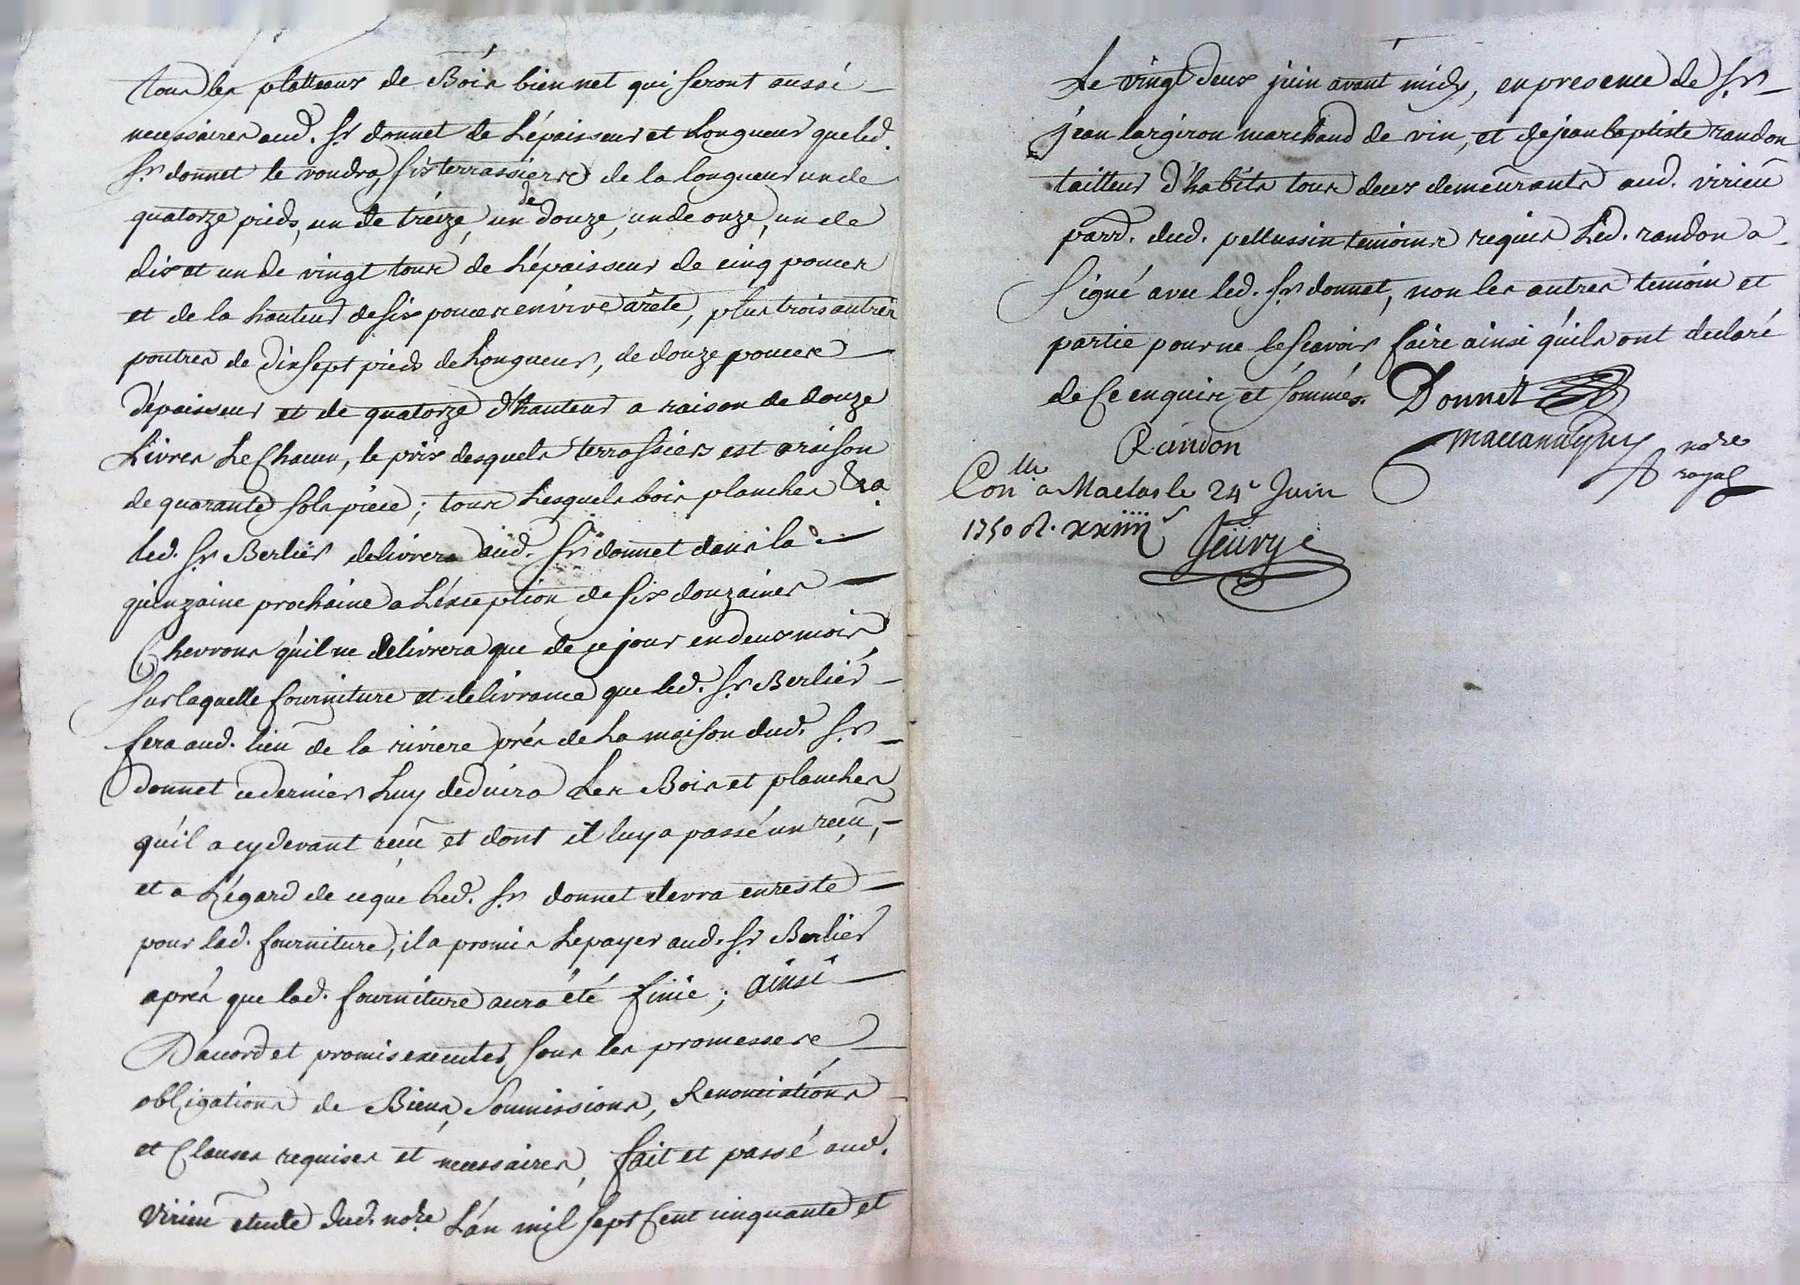 tous les platteaux de Bois bien net qui seront aussi
necessaires aud. Sr donnet de L'épaisseur et Longueur que led.
Sr donnet le voudra, six terrassiers de la longueur un de
quatorze pieds, un de tréize, un de douze, un de onze, un de
dix et un de vingt tous de L'épaisseur de cinq pouces
et de la hauteur de six pouces en vive arête, plus trois autres
poutres de dixsept pieds de Longueur, de douze pouces
d'épaisseur et de quatorze d'hauteur a raison de douze
Livres Le Chacun, le prix desquels terrassiers est a raison
de quarante sols pièce; tous Lesquels bois planches &ca
led. Sr Berlier delivrera aud. Sr donnet dans la
quinzaine prochaine a L'exception de six douzaines
Chevrons qu'il ne delivrera que de ce jour en deux mois
sur laquelle fourniture et delivrance que led. Sr Berliér
fera aud. lieu de la riviere près de La maison dud. Sr
donnet ce dernier Luy deduira Les Bois et planches
qu'il a cydevant reçeu et dont il luy a passé un reçeu,
et a L'égard de ce que Led. Sr donnet devra en reste
pour lad. fourniture, il a promis Le payer aud. Sr Berlier
aprés que lad. fourniture aura été finie; ainsi
D'accord et promis executer sous les promesses
obligations de Biens, Soumissions, Renonciations
et Clauses requises et necessaires, fait et passé aud.
Virieu etude dud. nore L'an mil sept Cent cinquante et
Le vingt deux juin avant midy, en presence de Sr
jean largiron marchand de vin, et de jean baptiste randon
tailleur d'habits tous deux demeurants aud. virieu
parr. dud. pellussin temoins requis Led. randon a
Signé avec led. Sr donnet, non les autres temoin et
partie pour ne le sçavoir faire ainsi qu'ils ont declaré
de Ce enquis et sommés. Donnet
Randon
nore
royal
Conlle a Maclas le 24e Juin
1750 R. xxiiii s